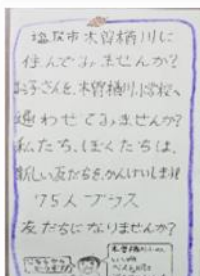 塩尻市木曽楢川に
住んでみませんか?
お子さんを、木曽楢川小学校へ
通わせてみませんか?
私たち、ぼくたちは、
新しい友だちを、かんげいします
75人プラス
友だちになりませんか?